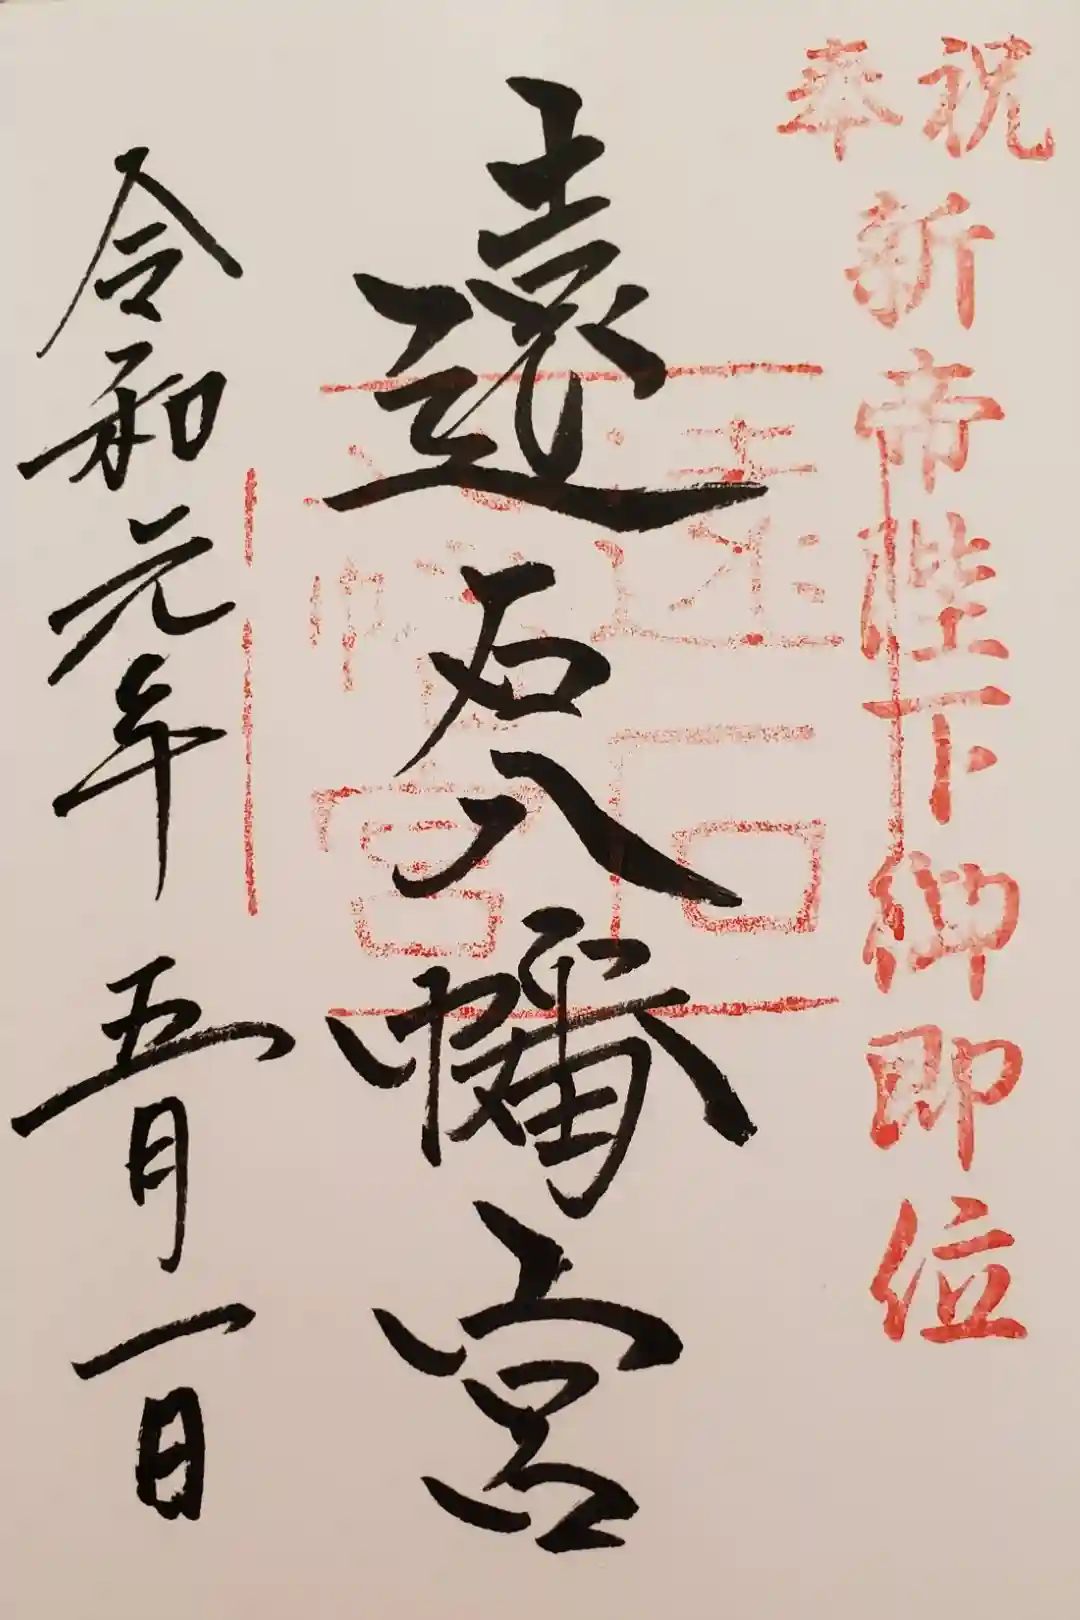 奉祝
新帝陛下御即位
遠石八幡宮
令和元年五月一日